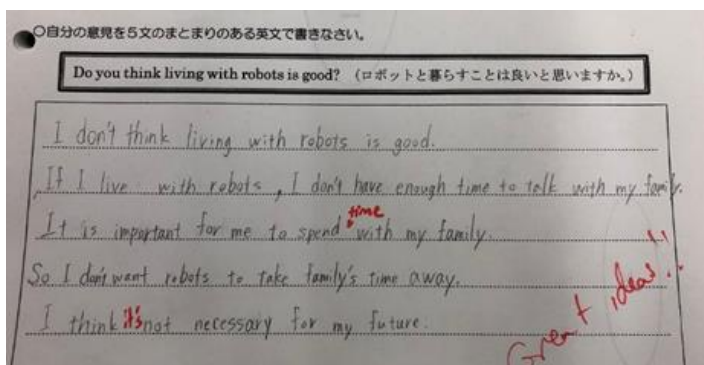 ○自分の意見を5文のまとまりのある英文で書きなさい。
Do you think living with robots is good? (ロボットと暮らすことは良いと思いますか。)
I don't think living with robots is good.
If I live with robots, I don't have enough time to talk with my family.
time
It is important for me to spend with my family.
So I don't want robots to take family's time away.
I think it's not necessary for my future.
Great ideas!!